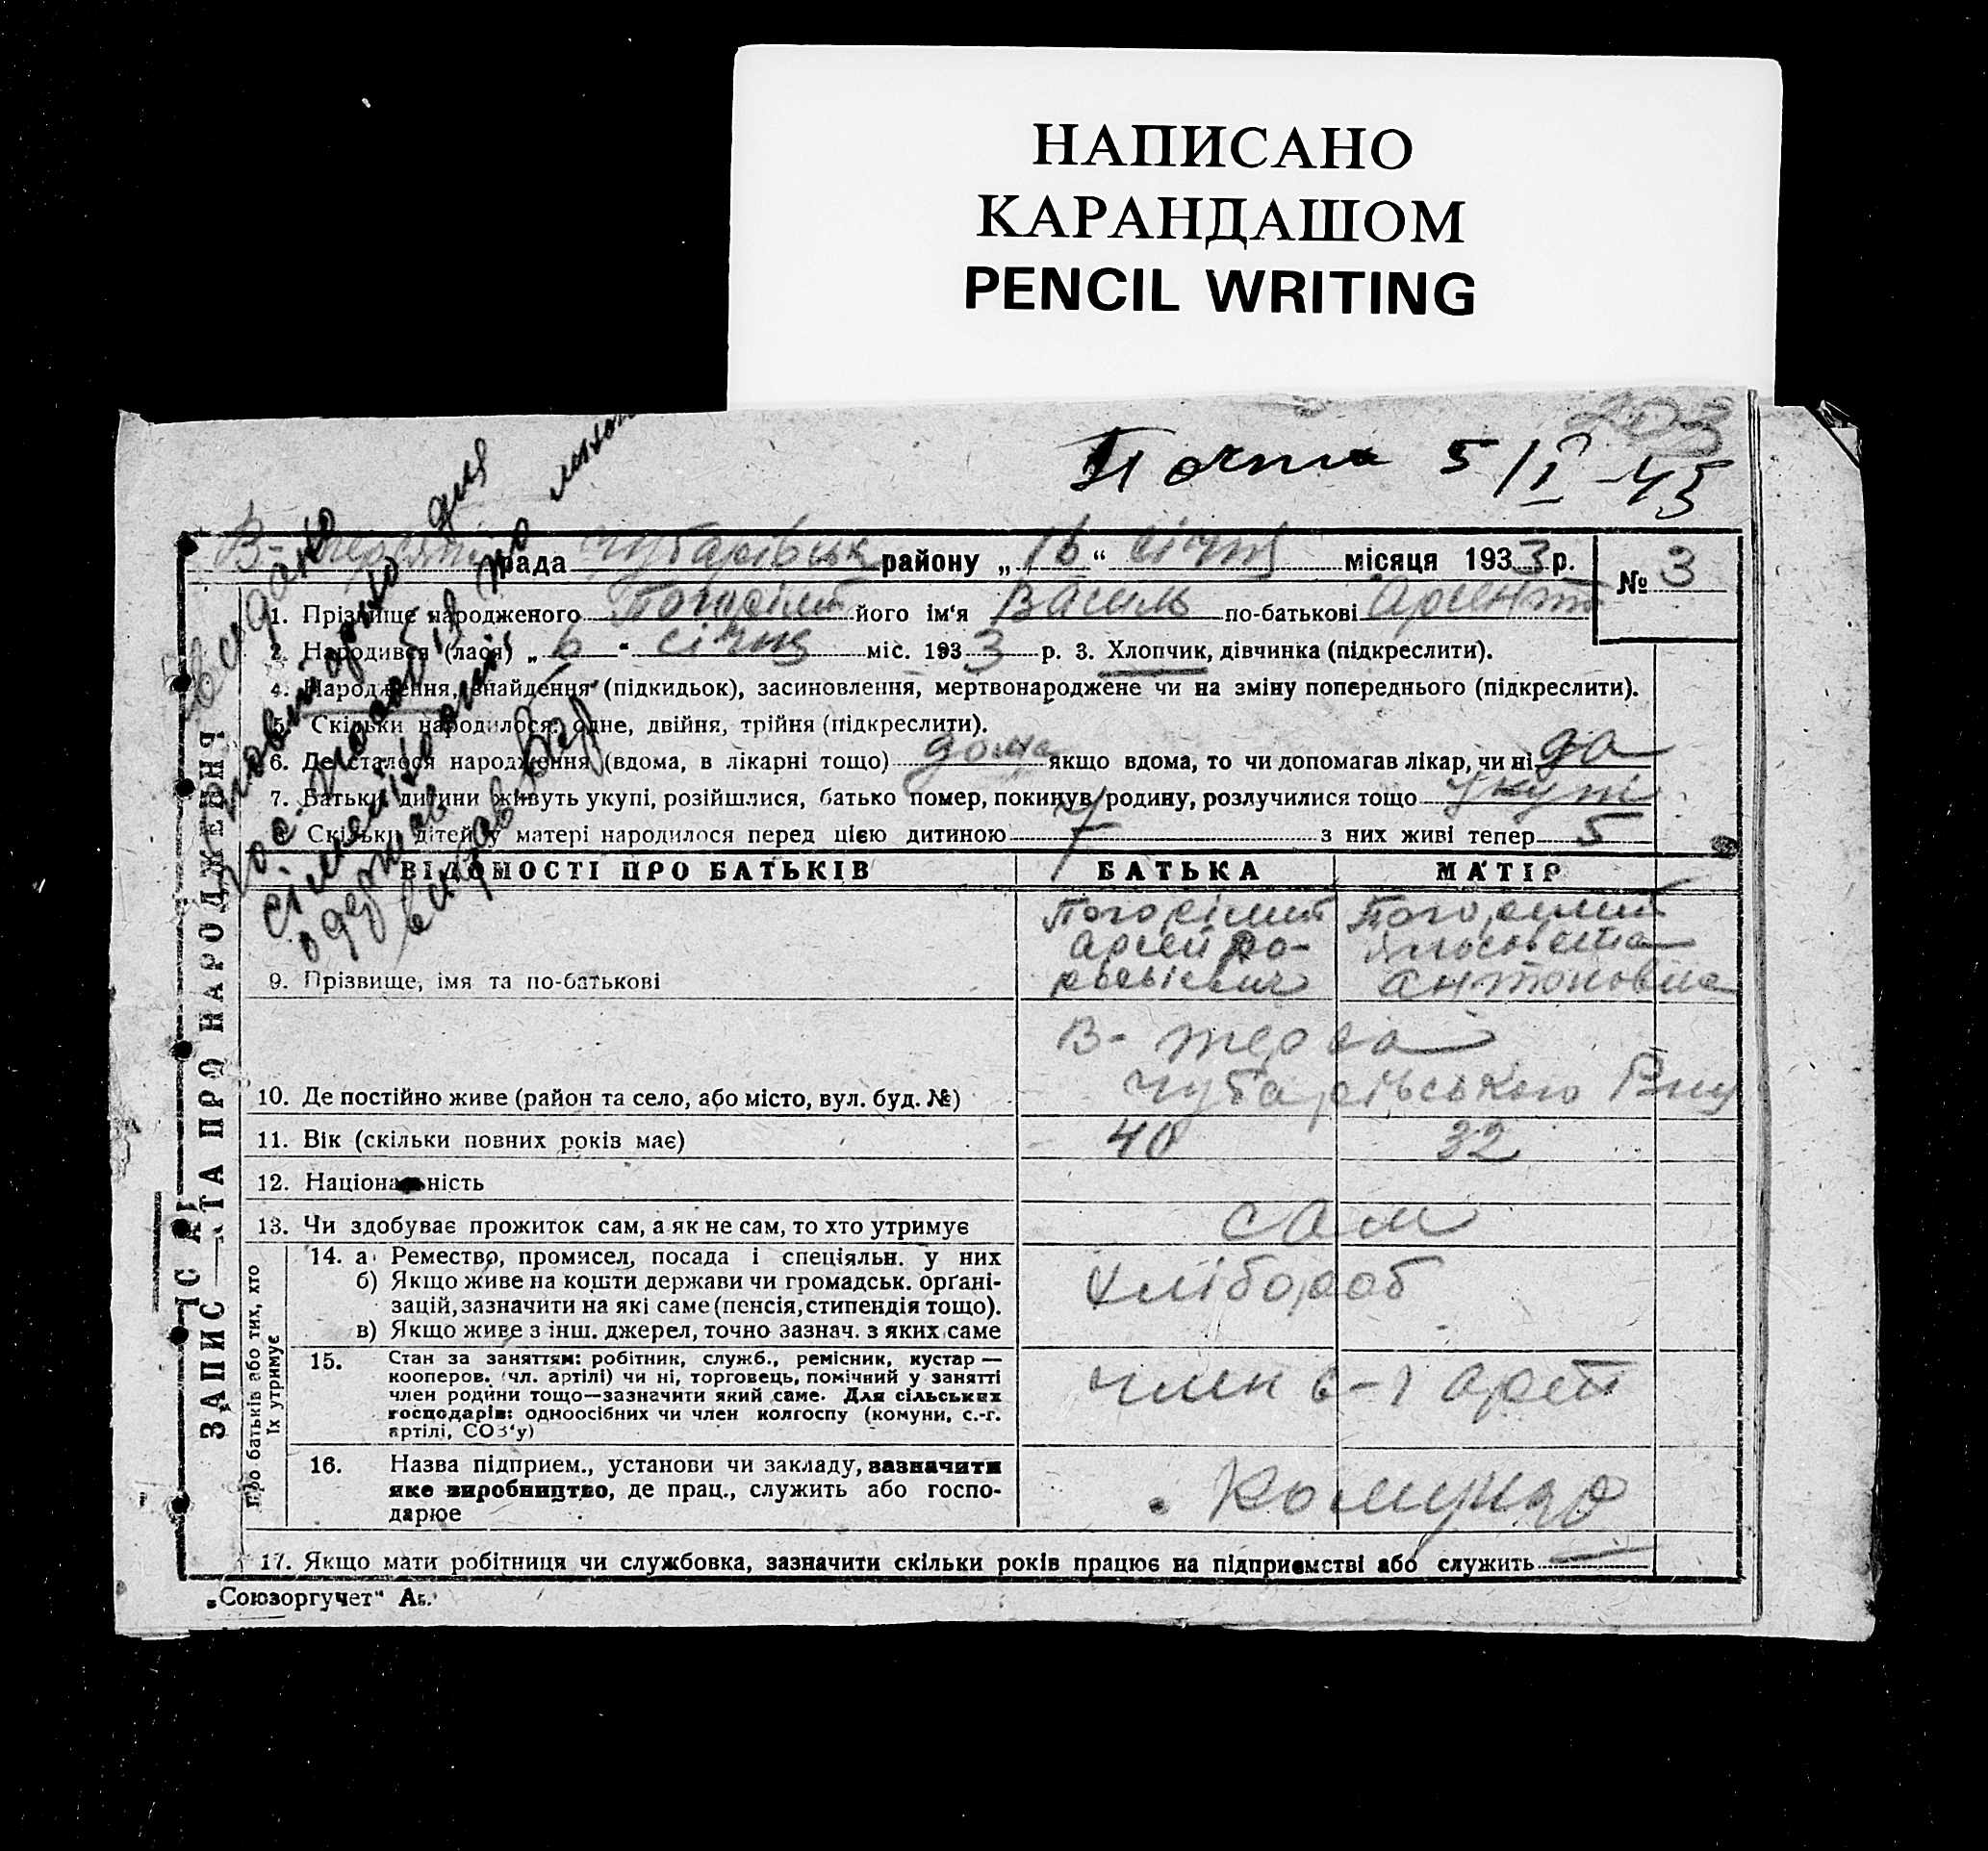 НАПИСАНО
КАРАНДАШОМ
PENCIL WRITING
203
Почта 5/I-45
видано
повторно для
гос. пособия по
одержав
ЗАПИС АКТА ПРО НАРОДЖЕННЯ
рада Чубарівськ району „16“ січня місяця 1933 р.
№ 3
1. Прізвище народженого Погорілий його ім'я Василь по-батькові Арсент
2. Народився (лася) „6“ січня міс. 1933 р. 3. Хлопчик, дівчинка (підкреслити).
4. Народження, знайдення (підкидьок), засиновлення, мертвонароджене чи на зміну попереднього (підкреслити).
5. Скільки народилося: одне, двійня, трійня (підкреслити).
6. Де сталося народження (вдома, в лікарні тощо) дома якщо вдома, то чи допомагав лікар, чи ні да
7. Батьки дитини живуть укупі, розійшлися, батько помер, покинув родину, розлучилися тощо укупі
8. Скільки дітей у матері народилося перед цією дитиною 7 з них живі тепер 5
ВІДОМОСТІ ПРО БАТЬКІВ БАТЬКА МАТІР
Погорілий Погорілий
Арсен
9. Прізвище, імя та по-батькові Антоновна
В-
10. Де постійно живе (район та село, або місто, вул. буд. №) Чубарівського
11. Вік (скільки повних років має) 40 32
12. Національність
13. Чи здобуває прожиток сам, а як не сам, то хто утримує сам
Про батьків або тих, хто їх утримує
14. а) Ремество, промисел, посада і спеціяльн. у них
б) Якщо живе на кошти держави чи громадськ. орґані-
зацій, зазначити на які саме (пенсія, стипендія тощо). хлібороб
в) Якщо живе з інш. джерел, точно зазнач. з яких саме
15. Стан за заняттям: робітник, служб., ремісник, кустар —
кооперов. (чл. артілі) чи ні, торговець, помічний у занятті
член родини тощо—зазначити який саме. Для сільських
господарів: одноосібних чи член колгоспу (комуни, с.-г.
артілі, СОЗ'у)
член с-г арт
16. Назва підприєм., установи чи закладу, зазначити
яке виробництво, де прац., служить або госпо-
дарює
17. Якщо мати робітниця чи службовка, зазначити скільки років працює на підприємстві або служить
„Союзоргучет“